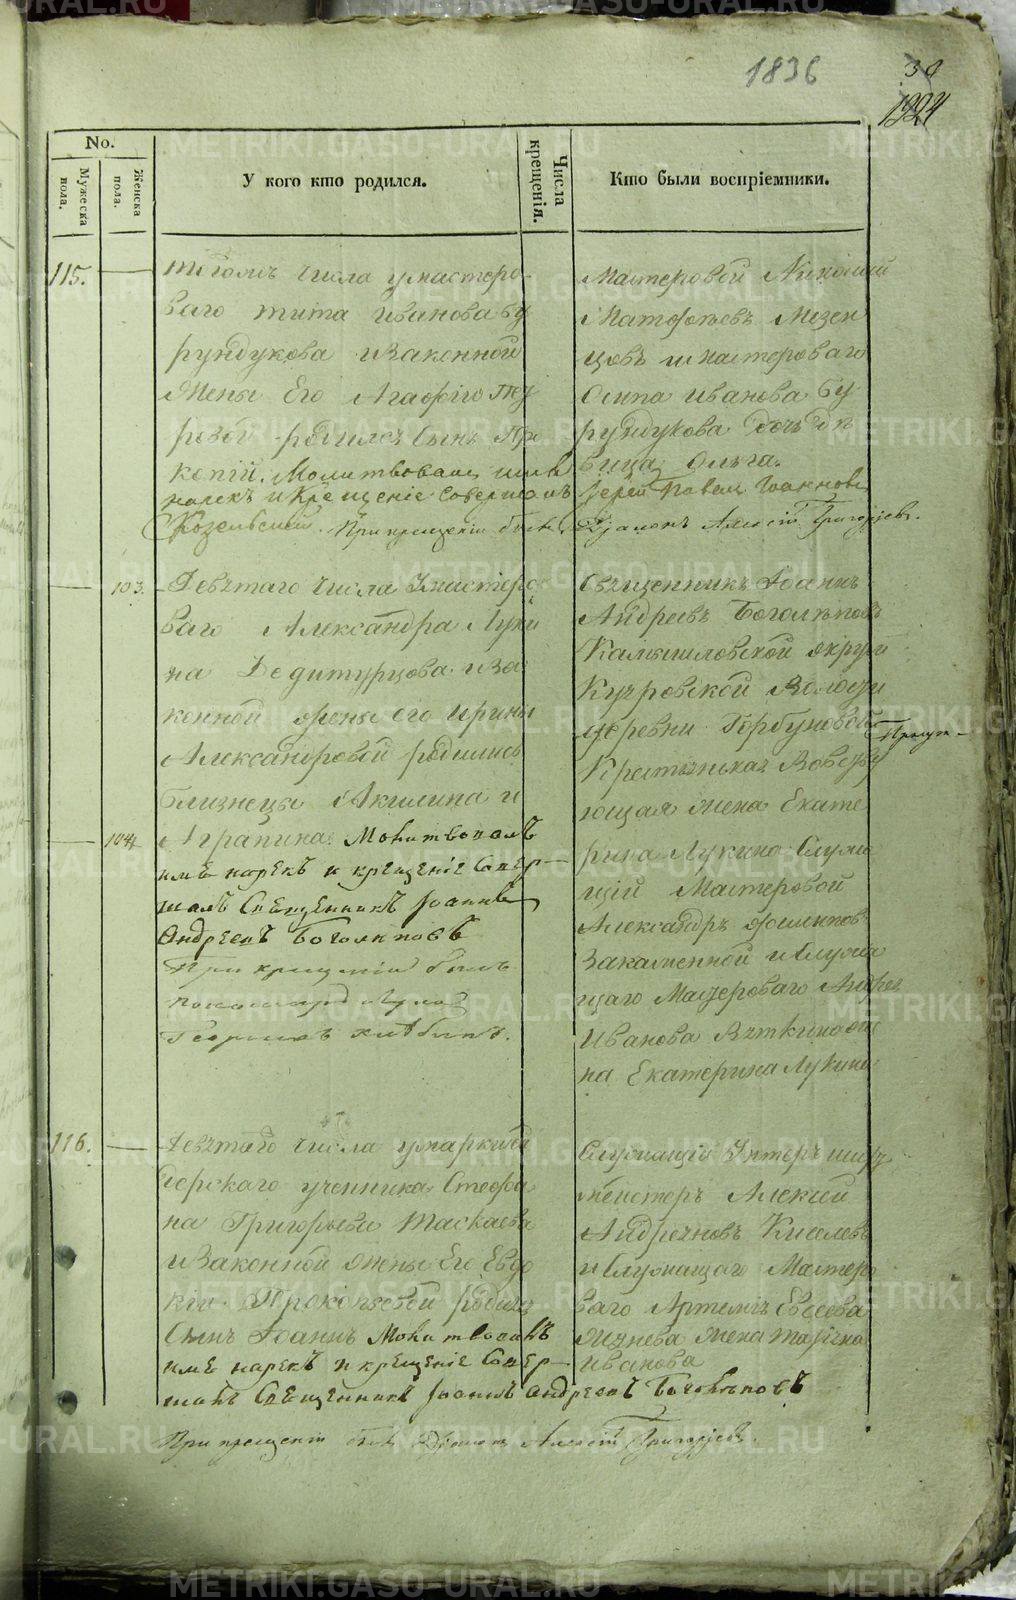 1836
No.
Мужеска пола.
Женска пола.
У кого кто родился.
Числа крещенія.
Кто были воспріемники.
115.
тогожъ числа умастеро
ваго тита иванова бу
рундукова изаконной
жены Его Агафіи
родился сынъ Про
копій. Молитвовалъ имя
нарекъ и Крещеніе совершилъ Іерей Павелъ Іоанновъ
Козельскій. При крещеніи былъ Діаконъ Алексій Григорьевъ.
Мастеровой Николай
Матфеевъ Мезен
цовъ имастероваго
Осипа иванова бу
рундукова дочь дѣ
вица Ольга.
103.
Девятаго числа Умастеро
ваго Александра Луки
на изa
конной жены его ирины
Александровой родились
близнецы Акилина и
104
Агрипина. Молитвовалъ
имѣ нарекъ и крещеніе совер
шалъ Священникъ Іоаннъ
Андреевъ Боголѣповъ
При крещеніи былъ
Священникъ Іоаннъ
Андреевъ Боголѣповъ
Камышловской округи
Волости
деревни Горбуновой
Крестьянка
жена Екате
рина Лукина Служа
щій Мастеровой
Александръ Филиповъ
ислужа
щаго Мастероваго Андрея
Иванова Вяткина
на Екатерина Лукина
116.
Девятаго числа умаркшей
дерскаго ученика Стефа
на Григорьева Таскаева
изаконной жены Его Евдо
кіи Прокопьевой родился
Сынъ Іоаннъ Молитвовалъ
имѣ нарекъ и крещеніе совер
шалъ Священникъ Іоаннъ Андреевъ Боголѣповъ
При крещеніи былъ Діаконъ Алексій Григорьевъ.
Служащій Унтеръ шихт
мейстеръ Алексей
Андреяновъ Киселевъ
ислужащаго Мастеро
ваго Артемія Евсеева
жена
Иванова
METRIKI.GASO-URAL.RU